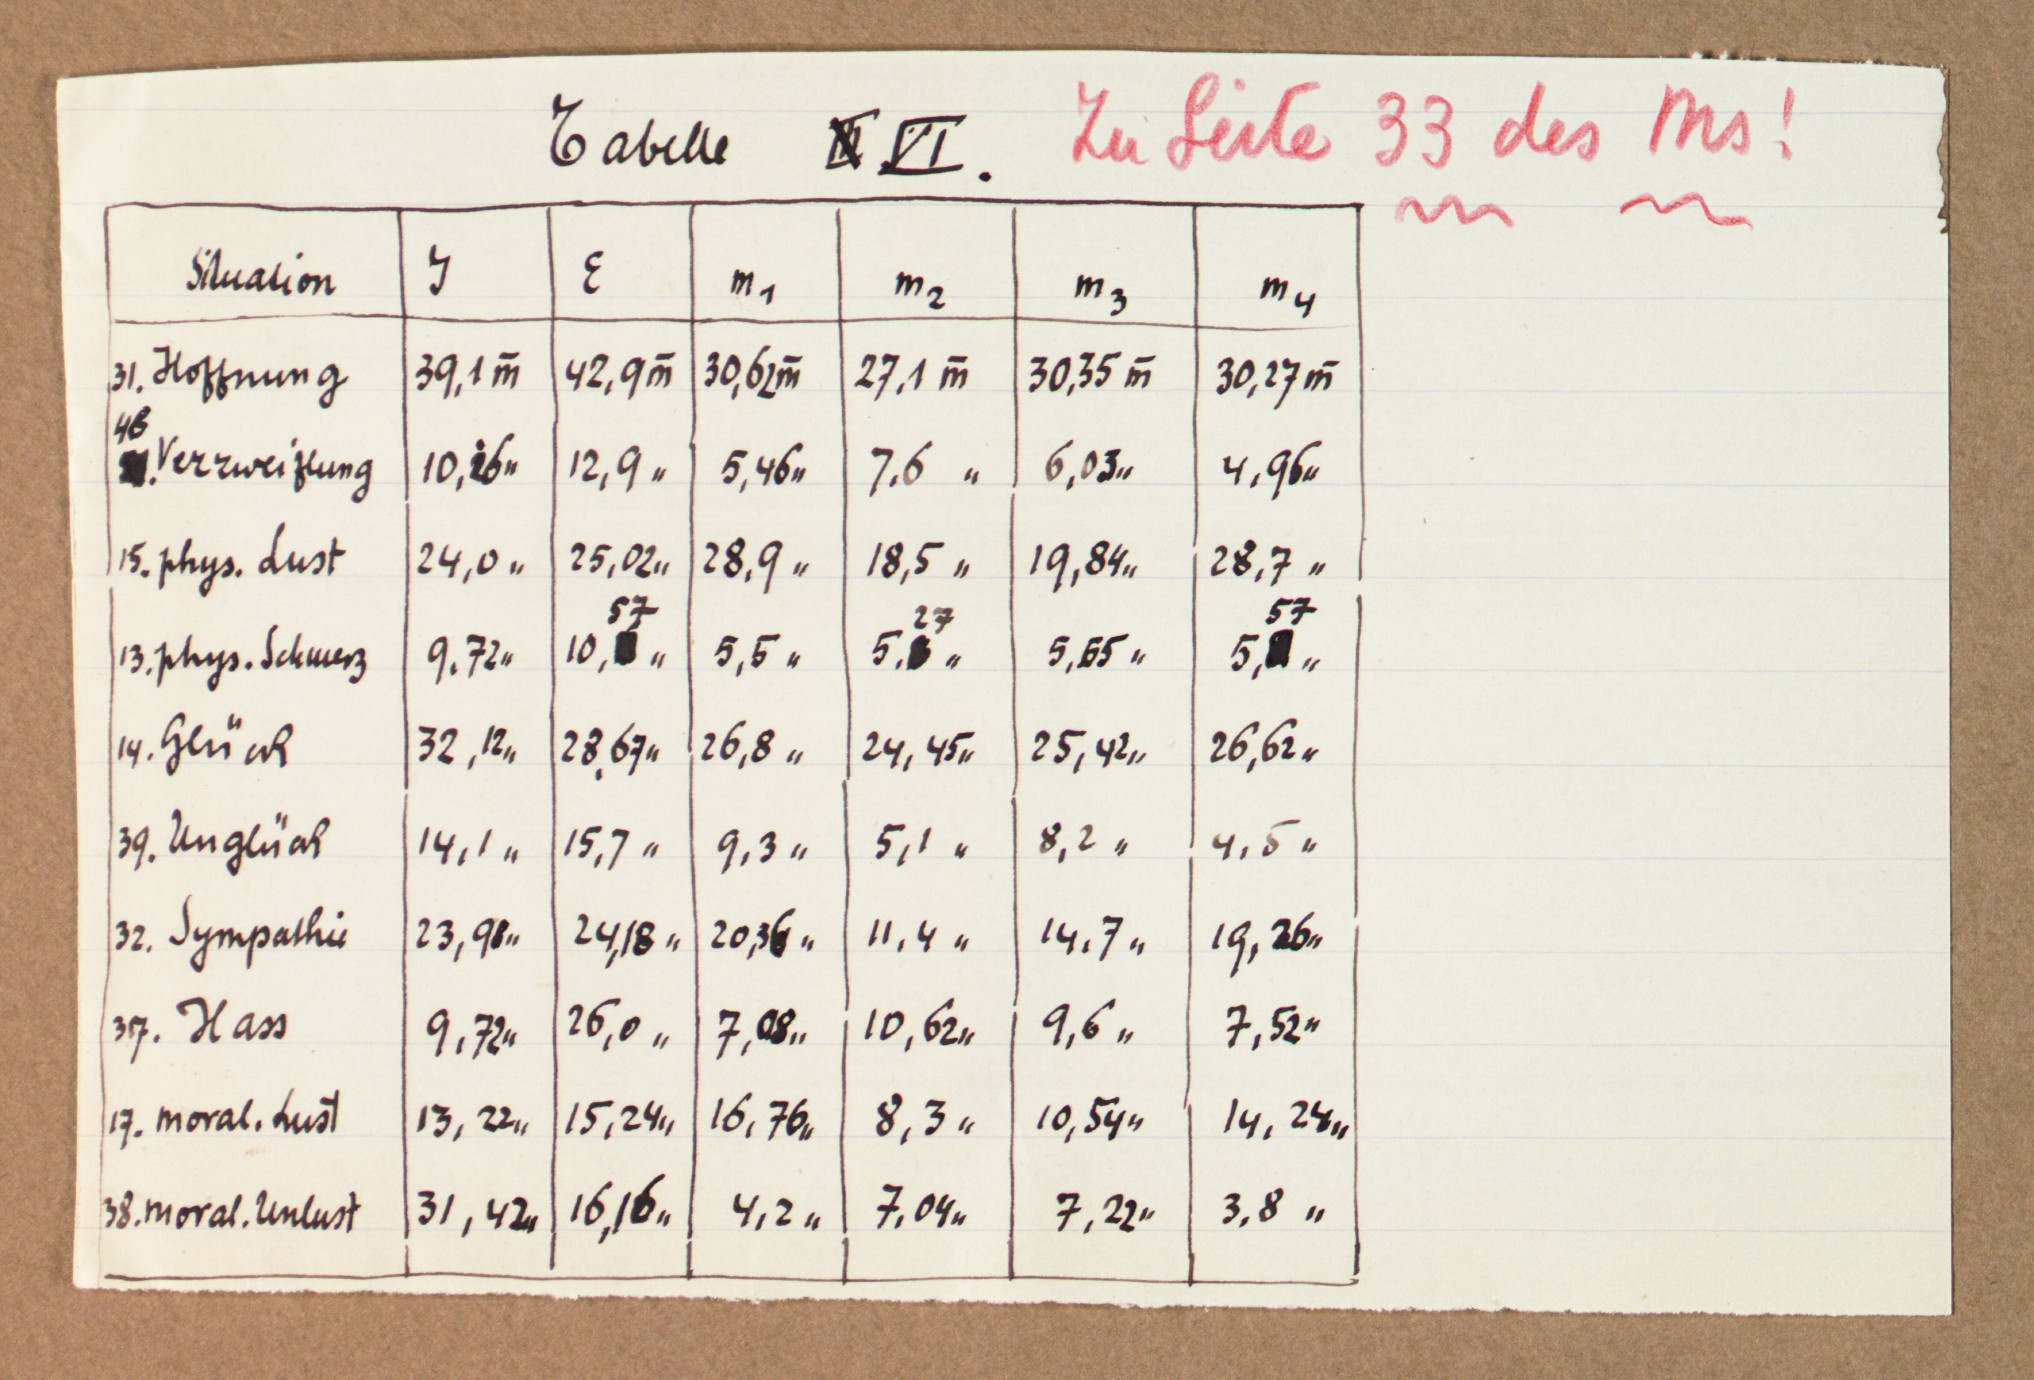 Tabelle VI. Zu Seite 33 des Ms!
Situation J E m₁ m₂ m₃ m₄
31. Hoffnung 39,1 m̅ 42,9 m̅ 30,62 m̅ 27,1 m̅ 30,35 m̅ 30,27 m̅
48. Verzweiflung 10,26 " 12,9 " 5,46 " 7,6 " 6,03 " 4,96 "
15. phys. Lust 24,0 " 25,02 " 28,9 " 18,5 " 19,84 " 28,7 "
13. phys. Schmerz 9,72 " 10,57 " 5,5 " 5,27 " 5,65 " 5,57 "
14. Glück 32,12 " 28,67 " 26,8 " 24,45 " 25,42 " 26,62 "
39. Unglück 14,1 " 15,7 " 9,3 " 5,1 " 8,2 " 4,5 "
32. Sympathie 23,98 " 24,18 " 20,36 " 11,4 " 14,7 " 19,26 "
37. Hass 9,72 " 26,0 " 7,08 " 10,62 " 9,6 " 7,52 "
17. moral. Lust 13,22 " 15,24 " 16,76 " 8,3 " 10,54 " 14,24 "
38. moral. Unlust 31,42 " 16,16 " 4,2 " 7,04 " 7,22 " 3,8 "